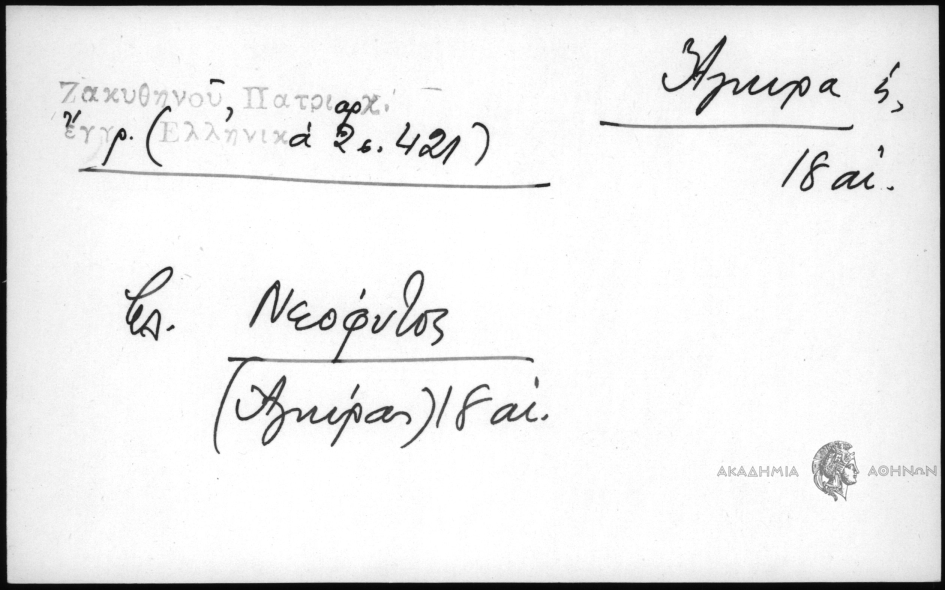 Ζακυθηνοῦ, Πατριαρχ.
ἔγγρ. (Ἑλληνικά 2 σ. 421)
Ἄγκυρα ἡ,
18 αἰ.
Ἐπ. Νεόφυτος
(Ἀγκύρας) 18 αἰ.
ΑΚΑΔΗΜΙΑ ΑΘΗΝΩΝ